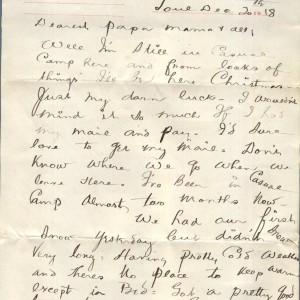 Toul Dec 20th 18
Dearest Papa Mama & all;
Well I'm Still in Casual
Camp here and from looks of
things I'll be here Christmas -
Just my darn luck - I wouldn't
mind it so much if I had
my mail and pay. I'd sure
love to get my mail. Don't
know where we go when we
leave here. I've been in Casual
Camp almost two months now -
We had our first
Snow yesterday but didn't
Very long. Having pretty cold weather
and there's no place to keep warm
except in Bed. Got a pretty good